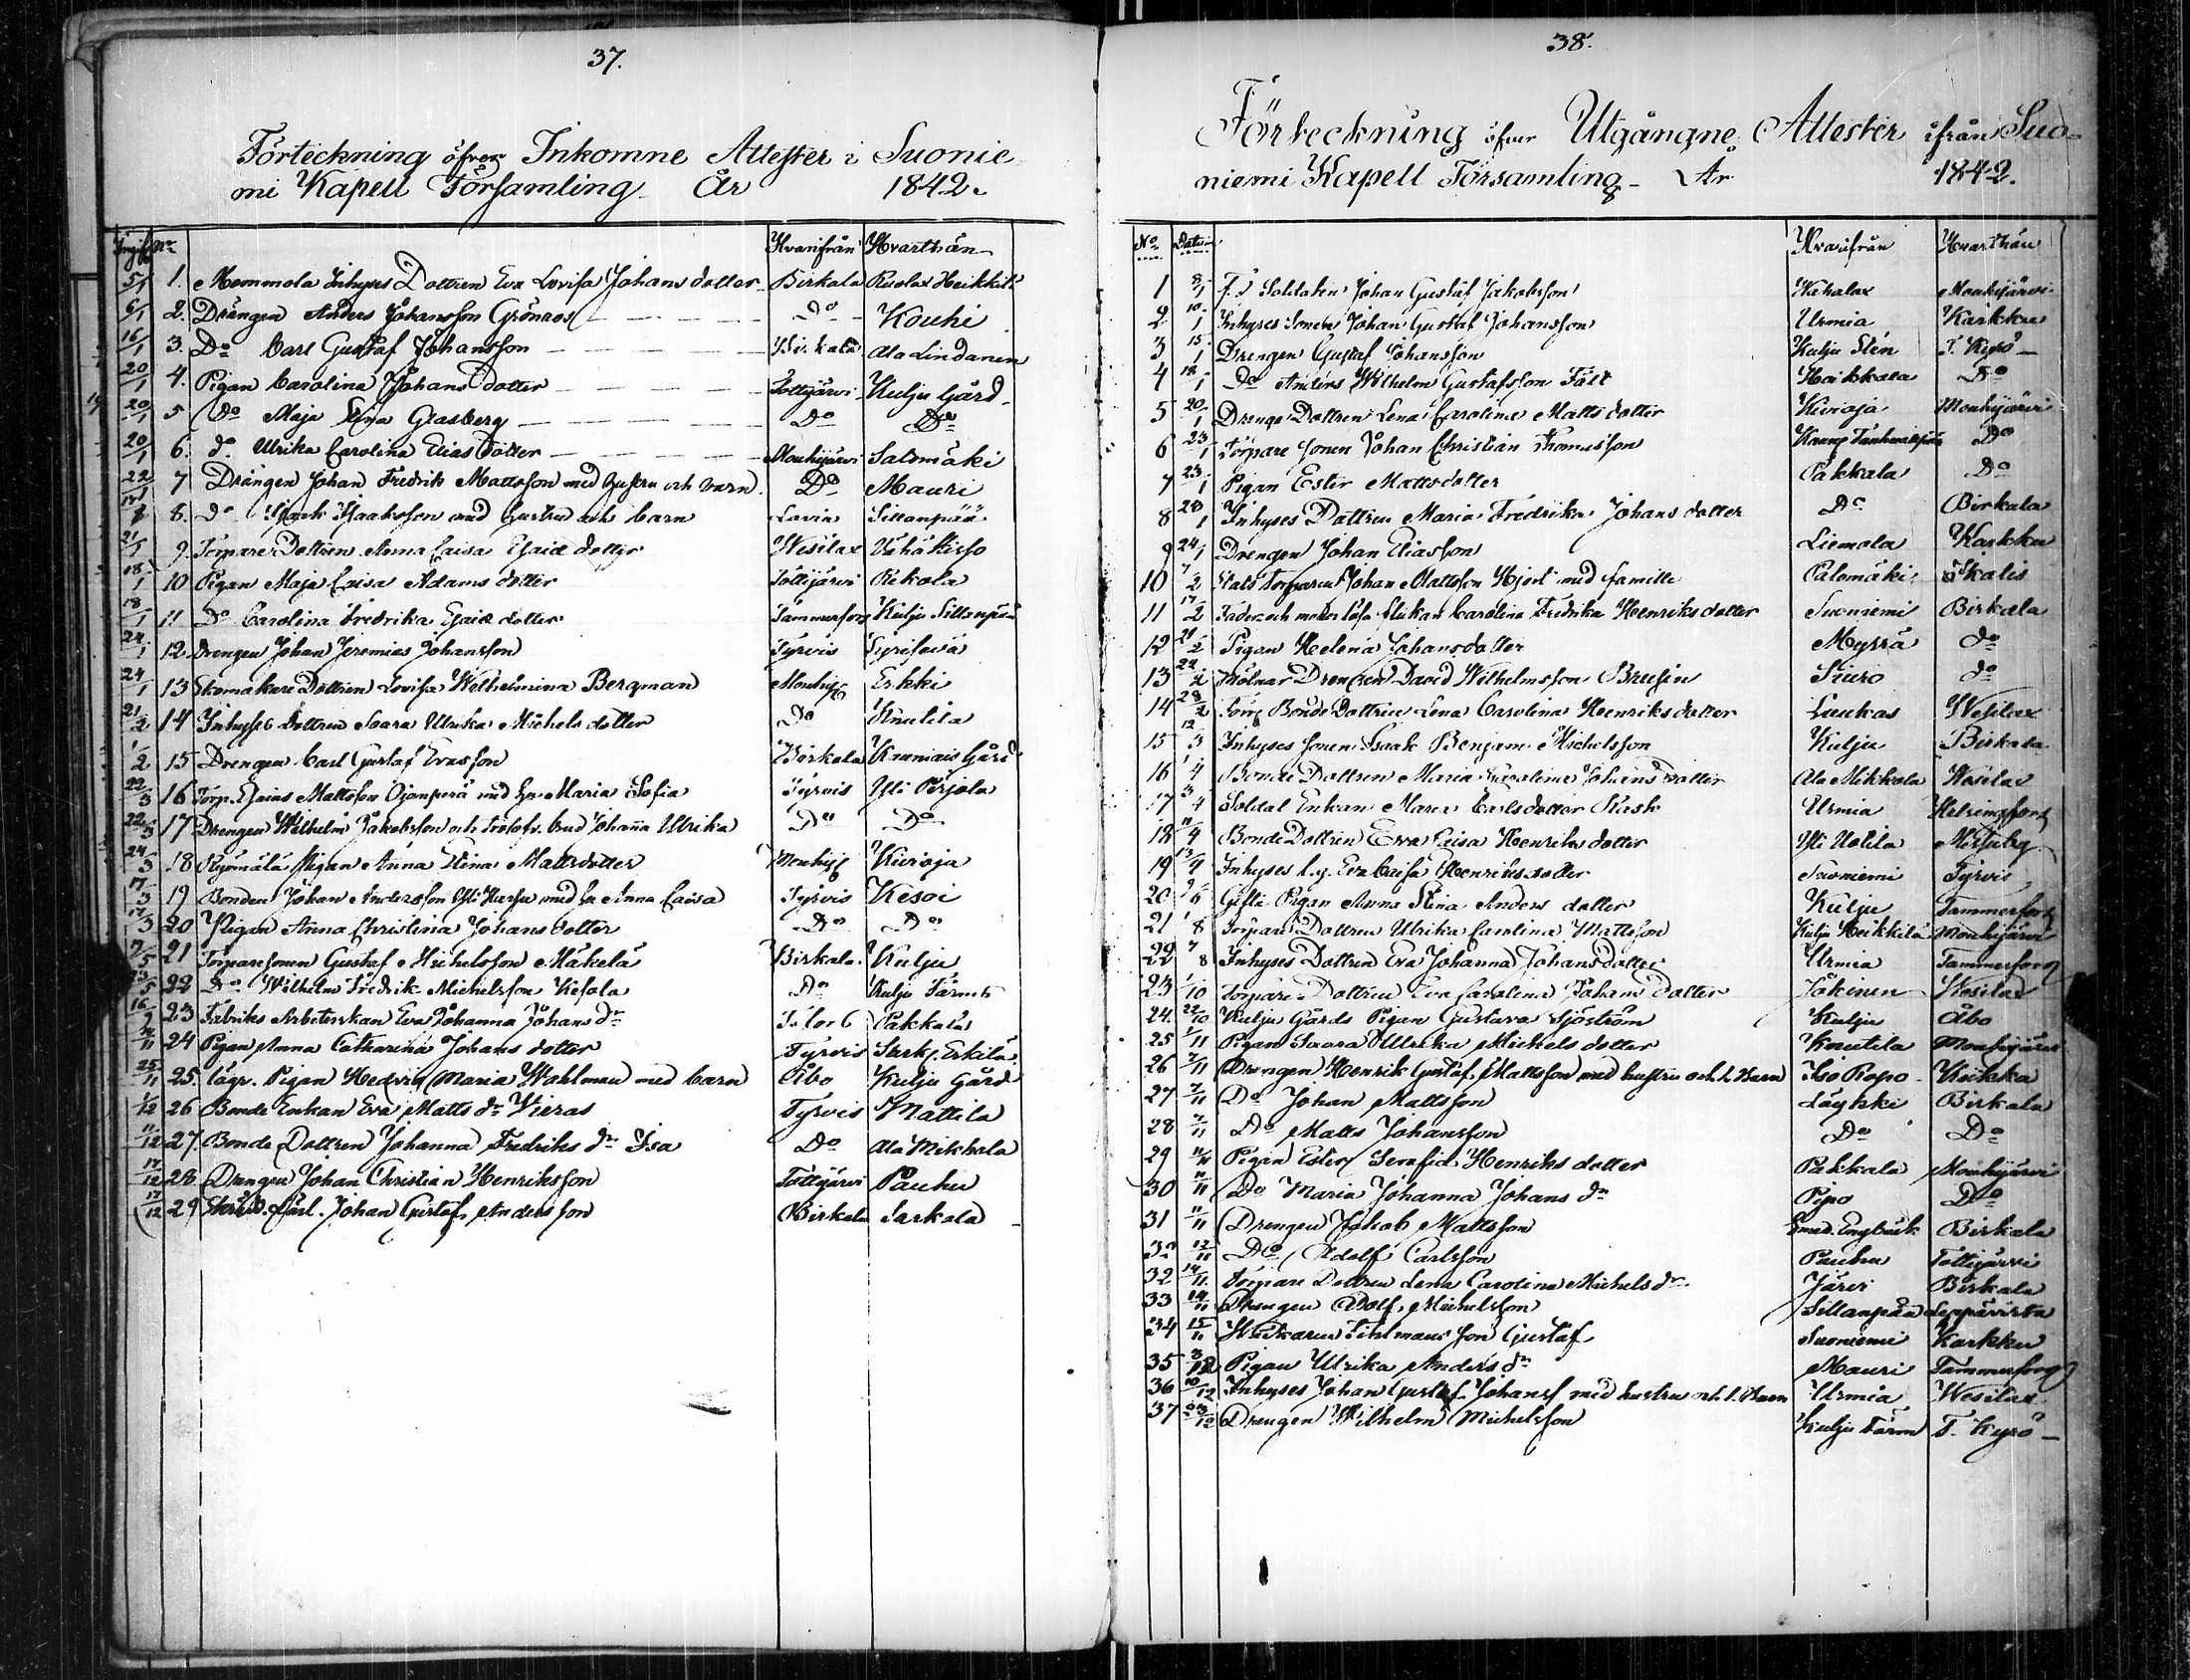 37.
Förteckning öfver Inkomne Attester i Suonie
mi Kapell Församling År 1842.
No Hvarifrån Hvarthän
5/1 1. Mommola Inhyses Dottren Eva Lovisa Johans dotter Birkala Heikkilä
6/1 2. Drängen Anders Johansson Grönroos Do Kouhi
16/1 3. Do Carl Gustaf Johansson Birkala Ala Lindanen
20/1 4. Pigan Carolina Johans dotter Tottijärvi Kulju Gård
20/1 5 Do Maja Lena Glasberg Do Do
20/1 6. do Ulrika Carolina Elias dotter Mouhijärvi Salomäki
22/1 7 Drängen Johan Fredrik Mattsson med hustru och barn Do Mauri
8. do Isaak Isaaksson med hustru och barn Lavia Sillanpää
21/1 9 Torpare Dottren Anna Caisa Esaiæ dotter Wesilax Vähä Kirfo
18/1 10 Pigan Maja Caisa Adams dotter Tottijärvi Rekola
18/1 11 Do Carolina Fredrika Esaiæ dotter Tammerfors Kulju Sillanpää
24/1 12 Drengen Johan Jeremias Johansson Tyrvis
24/1 13 Skomakare Dottren Lovisa Wilhelmina Bergman Mouhij Erkki
21/2 14 Inhyses Dottren Saara Ulrika Michels dotter Do Knutila
1/2 15 Drengen Carl Gustaf Evasson Birkala Kauniais Gård
22/3 16 Torp. Esaias Mattsson Ojanperä med hu Maria Sofia Tyrvis Yli Pirjola
22/3 17 Drengen Wilhelm Jakobsson och Trolofv. brud Johanna Ulrika Do Do
24/3 18 Pigan Anna Stina Mattsdotter Mouhij Kivioja
17/3 19 Bonden Johan Andersson Yli med hu Anna Caisa Tyrvis Kesoi
17/3 20 Pigan Anna Christina Johans dotter Do Do
7/5 21 Torpare sonen Gustaf Michelsson Mäkelä Birkala Kulju
22 Do Wilhelm Fredrik Michelsson Kesola Do Kulju
16/9 23 Fabriks Arbeterskan Eva Johanna Johans dr Pakkala
24 Pigan Anna Catharina Johans dotter Tyrvis Erkilä
25/11 25. lägr. Pigan Hedvig Maria Wahlman med barn Åbo Kulju Gård
1/12 26 Bonde Enkan Eva Matts dr Vieras Tyrvis Mattila
11/12 27. Bonde Dottren Johanna Fredriks dr Isa Do Ala Mikkola
17/12 28 Drengen Johan Christian Henriksson Tottijärvi Pauhu
17/12 29 Johan Gustaf Andersson Birkala Sarkola
38.
Förteckning öfver Utgångne Attester ifrån Suo-
niemi Kapell Församling År 1842.
No Datum Hvarifrån Hvarthän
1 8/1 F.d Soldaten Johan Gustaf Jakobsson Kehalax Mouhijärvi
2 10/1 Inhyses Sonen Johan Gustaf Johansson Urmia Karkku
3 15/1 Drengen Gustaf Johansson Kulju Sten T. Kyrö
4 18/1 Do Anders Wilhelm Gustafsson Fält Haikkala Do
5 20/1 Drengs Dottren Lena Carolina Matts dotter Kivioja Mouhijärvi
6 23/1 Torpare Sonen Johan Christian Thomasson Do
7 23/1 Pigan Ester Mattsdotter Pakkala Do
8 23/1 Inhyses Dottren Maria Fredrika Johans dotter Do Birkala
9 24/1 Drengen Johan Eliasson Liemola Karkku
10 7/2 Stats Torparen Johan Mattsson Hjort med familie Palomäki Ikalis
11 17/2 Fader och moderlösa flickan Carolina Fredrika Henriks dotter Suoniemi Birkala
12 21/2 Pigan Helena Johansdotter Myrrä do
13 22/2 Mölnar Drengen David Wilhelmsson Brusin Siuro do
14 28/2 Torp Bonde Dottren Lena Carolina Henriks dotter Laukas Wesilax
15 12/3 Inhyses sonen Isaak Benjam. Michelsson Kulju Birkala
16 1/4 Bonde Dottren Maria Carolina Johans dotter Ala Mikkola Wesilax
17 3/4 Soldat Enkan Maria Carlsdotter Rask Urmia Helsingfors
18 11/4 Bonde Dottren Eva Caisa Henriks dotter Yli Uotila
19 13/4 Inhyses l. g. Eva Caisa Henriks dotter Suoniemi Tyrvis
20 9/6 Gifta Pigan Anna Stina Anders dotter Kulju Tammerfors
21 1/8 Torpare Dottren Ulrika Carolina Mattsson Kulju Heikkilä Mouhijärvi
22 7/8 Inhyses Dottren Eva Johanna Johans dotter Urmia Tammerfors
23 1/10 Torpare Dottren Eva Carolina Johans dotter Jokinen Wesilax
24. 22/10 Kulju Gårds Pigan Gustava Sjöström Kulju Åbo
25 1/11 Pigan Saara Ulrika Michels dotter Knutila Mouhijärvi
26 7/11 Drengen Henrik Gustaf Mattsson med hustru och 1. Barn Iso Ropo Kuikka
27 7/11 Do Johan Mattsson Läykki Birkala
28 7/11 Do Matts Johansson Do Do
29 11/11 Pigan Ester Serafia Henriks dotter Pakkala Mouhijärvi
30 11/11 Do Maria Johanna Johans dr Pipo Do
31 11/11 Drengen Jakob Mattsson Smed. Engbäck Birkala
32 12/11 Do Adolf Carlsson Pauhu Tottijärvi
32 14/11 Torpare Dottren Lena Carolina Michels dr Järvi Birkala
33 14/11 Drengen Adolf Michelsson Sillanpää Leppävirta
34 15/11 son Gustaf Suoniemi Karkku
35 3/12 Pigan Ulrika Anders dr Mauri Tammerfors
36 10/12 Inhyses Johan Gustaf Johanss med hustru och 1. Barn Urmia Wesilax
37 23/12 Drengen Wilhelm Michelsson Kulju Farm T. Kyrö